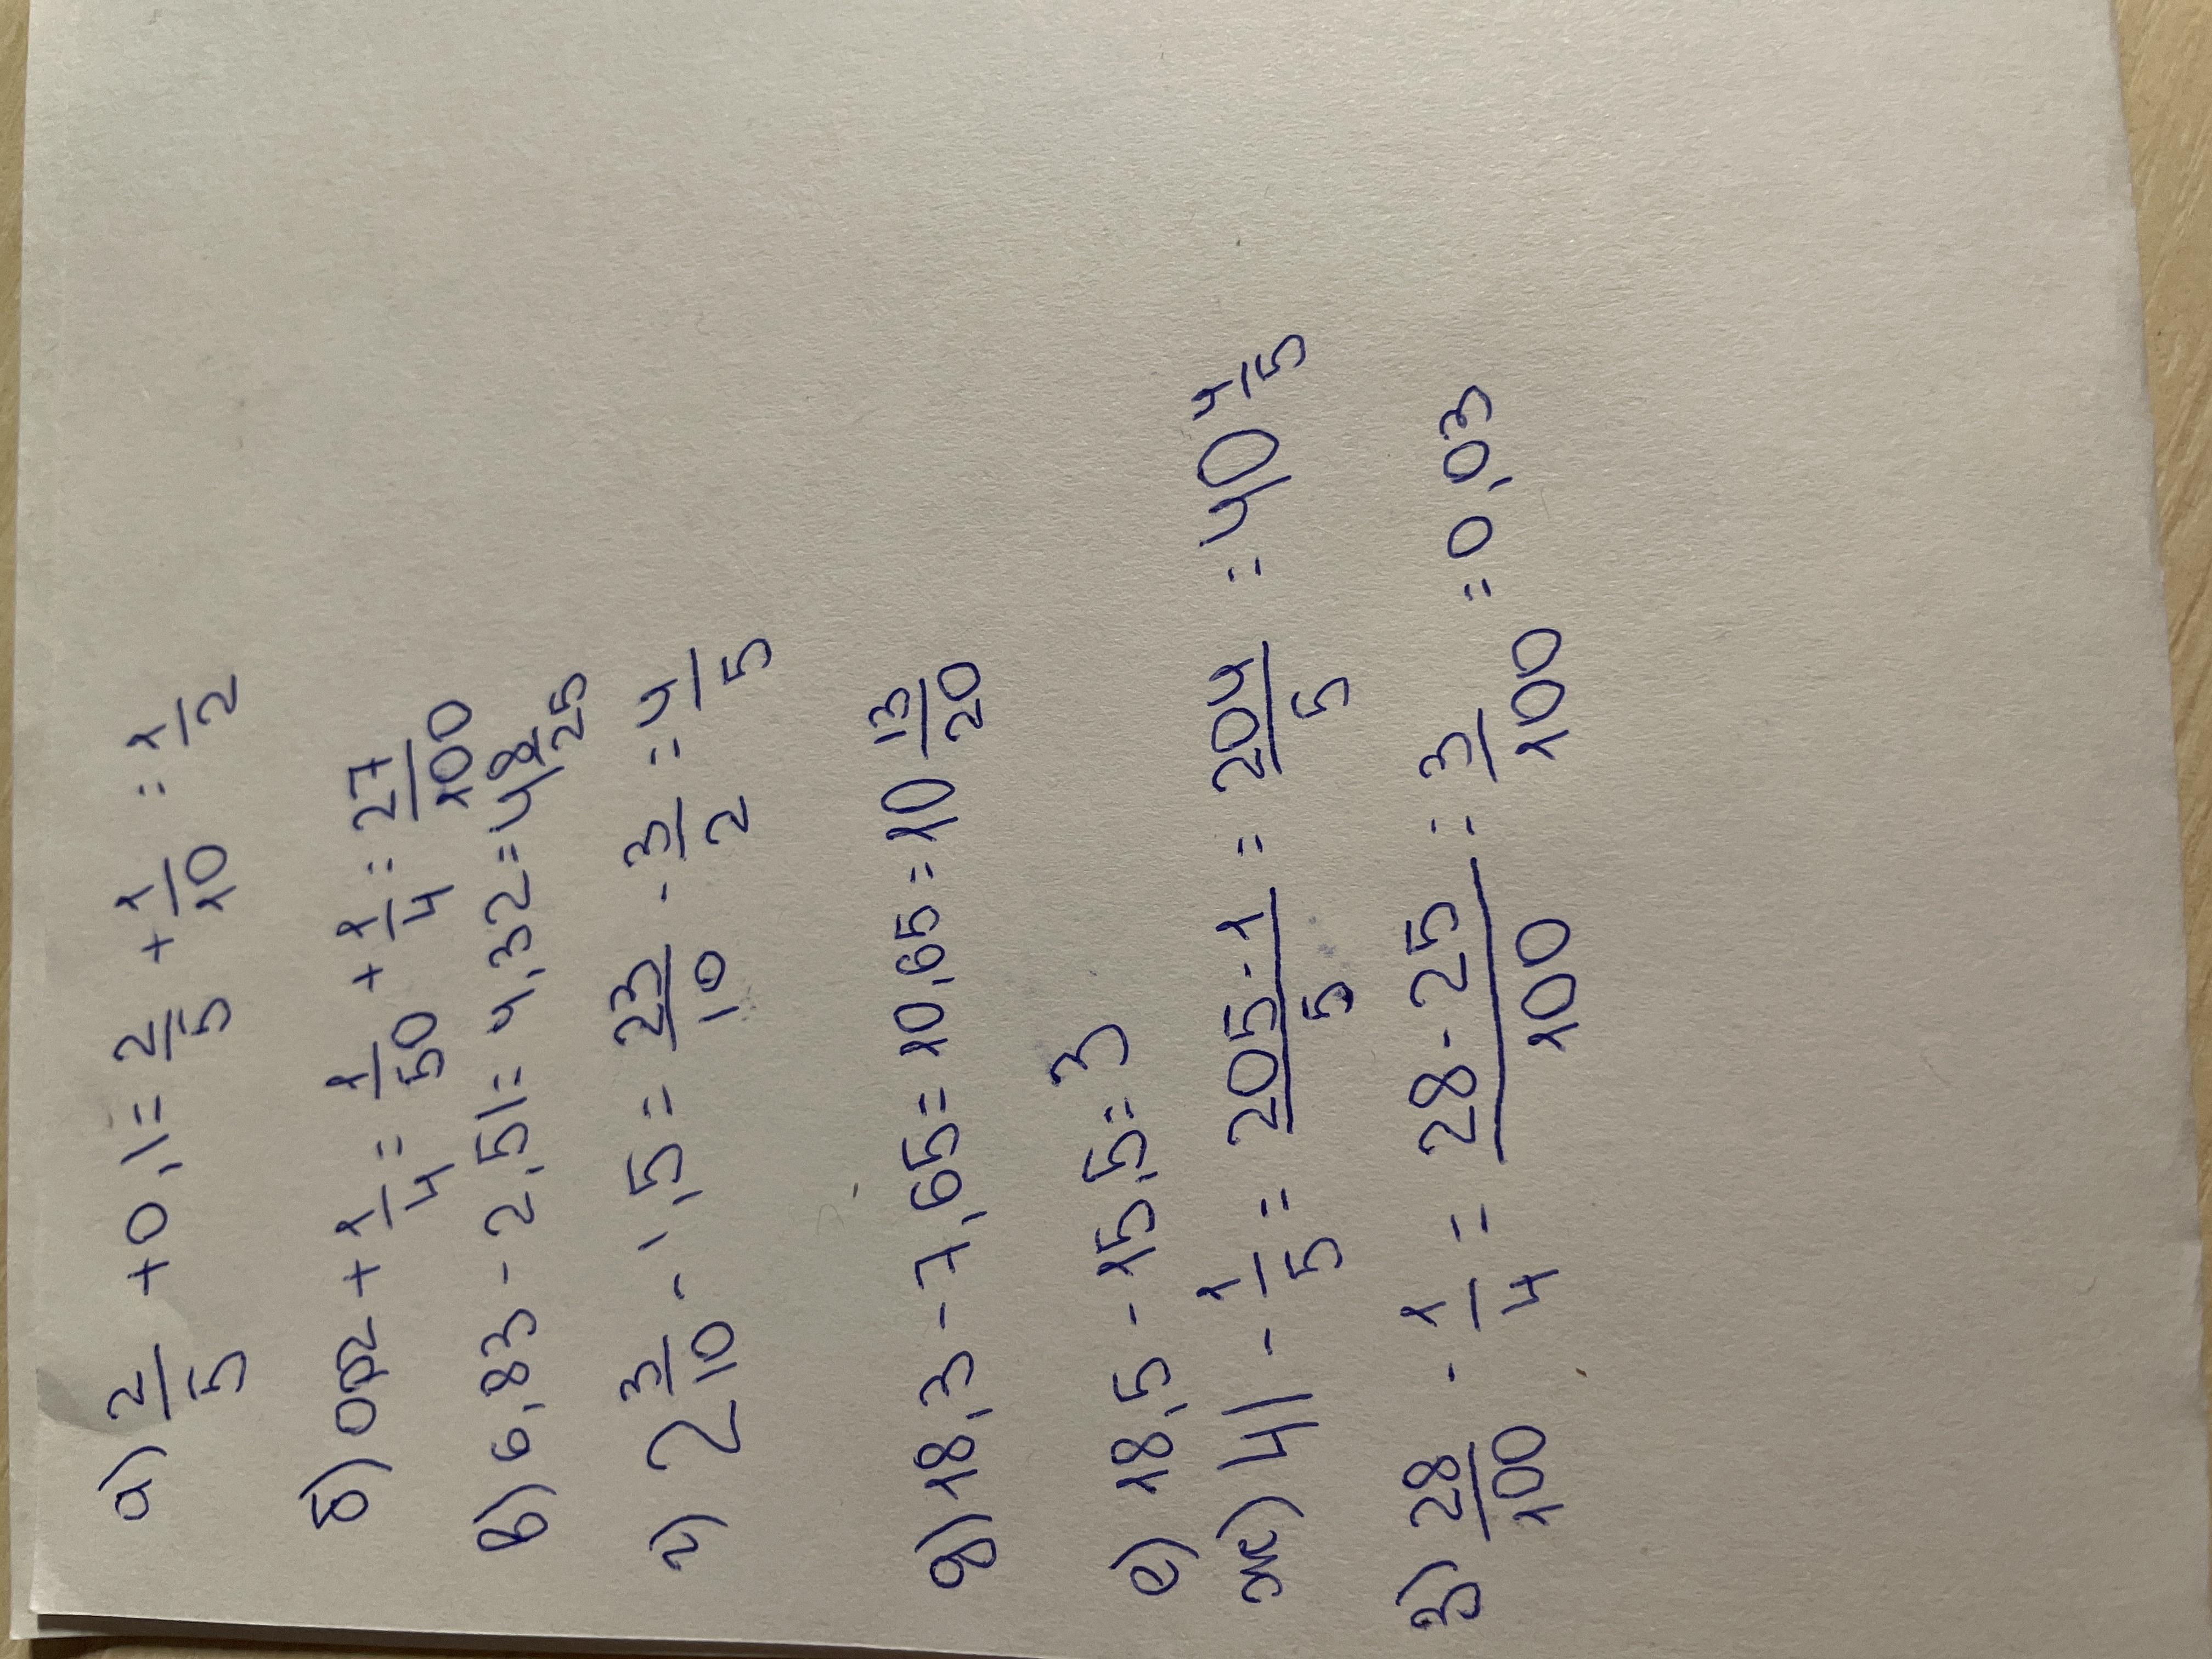 а) 2/5 + 0,1 = 2/5 + 1/10 = 1/2
б) 0,02 + 1/4 = 1/50 + 1/4 = 27/100
в) 6,83 - 2,51 = 4,32 = 4 8/25
г) 2 3/10 - 1,5 = 23/10 - 3/2 = 4/5
д) 18,3 - 7,65 = 10,65 = 10 13/20
е) 18,5 - 15,5 = 3
ж) 41 - 1/5 = 205-1/5 = 204/5 = 40 4/5
з) 28/100 - 1/4 = 28-25/100 = 3/100 = 0,03